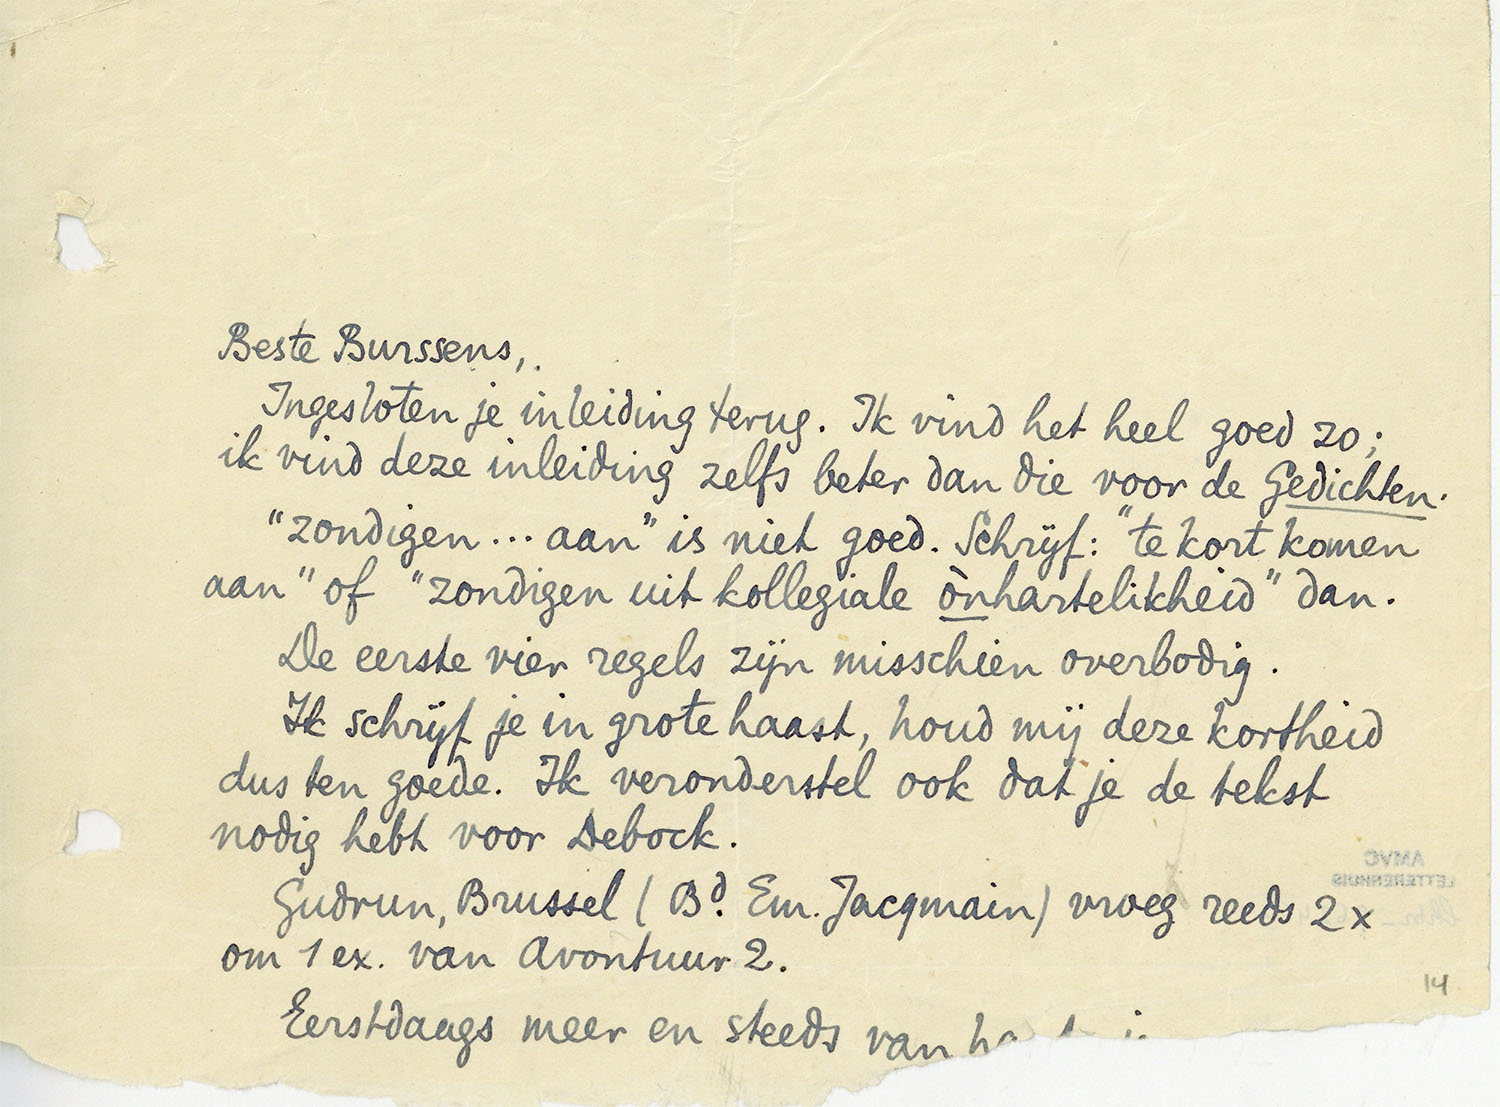 Beste Burssens,
Ingesloten je inleiding terug. Ik vind het heel goed zo;
ik vind deze inleiding zelfs beter dan die voor de Gedichten.
"zondigen... aan" is niet goed. Schrijf: "te kort komen
aan" of "zondigen uit kollegiale ònhartelikheid" dan.
De eerste vier regels zijn misschien overbodig.
Ik schrijf je in grote haast, houd mij deze kortheid
dus ten goede. Ik veronderstel ook dat je de tekst
nodig hebt voor Debock.
Gudrun, Brussel (Bd. Em. Jacqmain) vroeg reeds 2 x
om 1 ex. van Avontuur 2.
Eerstdaags meer en steeds van
AMVC
LETTERENHUIS
14